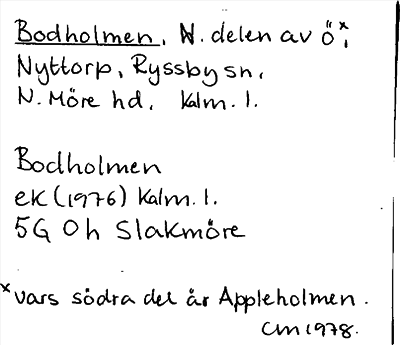 Bodholmen, N. delen av ö x i
Nyttorp, Ryssby sn,
N. Möre hd, Kalm. l.
Bodholmen
ek (1976) Kalm. l.
5G 0h Slakmöre
x vars södra del är Äppleholmen.
CM 1978.